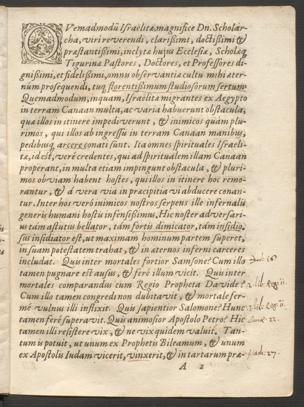 Quemadmodū Israelitæ, magnifice Dn. Scholarcha, viri reverendi, clarissimi, doctissimi &
præstantissimi, inclytæ hujus Ecclesiæ, Scholæq;
Tigurinæ Pastores, Doctores, et Professores dignissimi, et fidelissimi, omni observantiæ cultu mihi æternum prosequendi,
Quemadmodum, inquam, Israelitæ migrantes ex Ægypto
in terram Canaan multa, ac varia habuerunt obstacula,
quæ illos in itinere impediverunt, & inimicos quàm plurimos, qui illos ab ingressu in terram Canaan manibus,
pedibusq; arcere conati sunt. Ita omnes spirituales Israelitæ, id est, verè credentes, qui ad spiritualem illam Canaan
properant, in multa etiam impingunt obstacula, & plurimos obviam habent hostes, qui illos in itinere hoc remorantur, & à vera via in præcipitia vi abducere conantur. Inter hos verò inimicos nostros serpens ille infernalis
generis humani hostis infensissimus, Hic noster adversarius tàm astutus bellator, tàm fortis dimicator, tàm insidiosus insidiator est, ut maximam hominum partem superet,
in suam potestatem trahat, & in æternos inferni carceres
includat. Quis inter mortales fortior Samsone? Cum illo
tamen pugnare est ausus, & ferè illum vicit. Quis inter
mortales comparandus cum Regio Propheta Davide?
Cum illo tamen congredi non dubitavit, & mortale fermè vulnus illi inflixit. Quis sapientior Salomone? Hunc
tamen ferè superavit. Quis animosior Apostolo Petro? Hic
tamen illi resistere vix, & ne vix quidem valuit. Tantum is potuit, ut unum ex Prophetis Bileamum, & unum
ex Apostolis Iudam vicerit, vinxerit, & in tartarum præ-
A 2